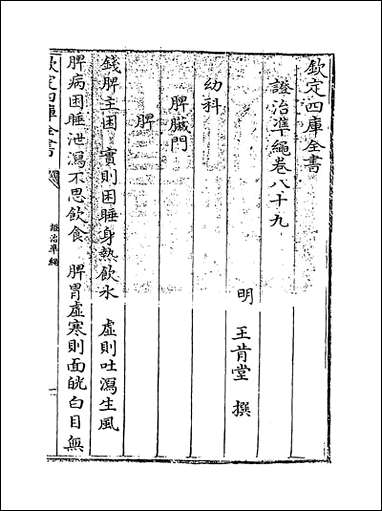 欽定四庫全書
證治準繩卷八十九
明 王肯堂 撰
幼科
脾臟門
脾
錢脾主困 實則困睡身熱飲水 虛則吐瀉生風
脾病困睡泄瀉不思飲食 脾胃虛寒則面㿠白目無
欽定四庫全書
證治準繩